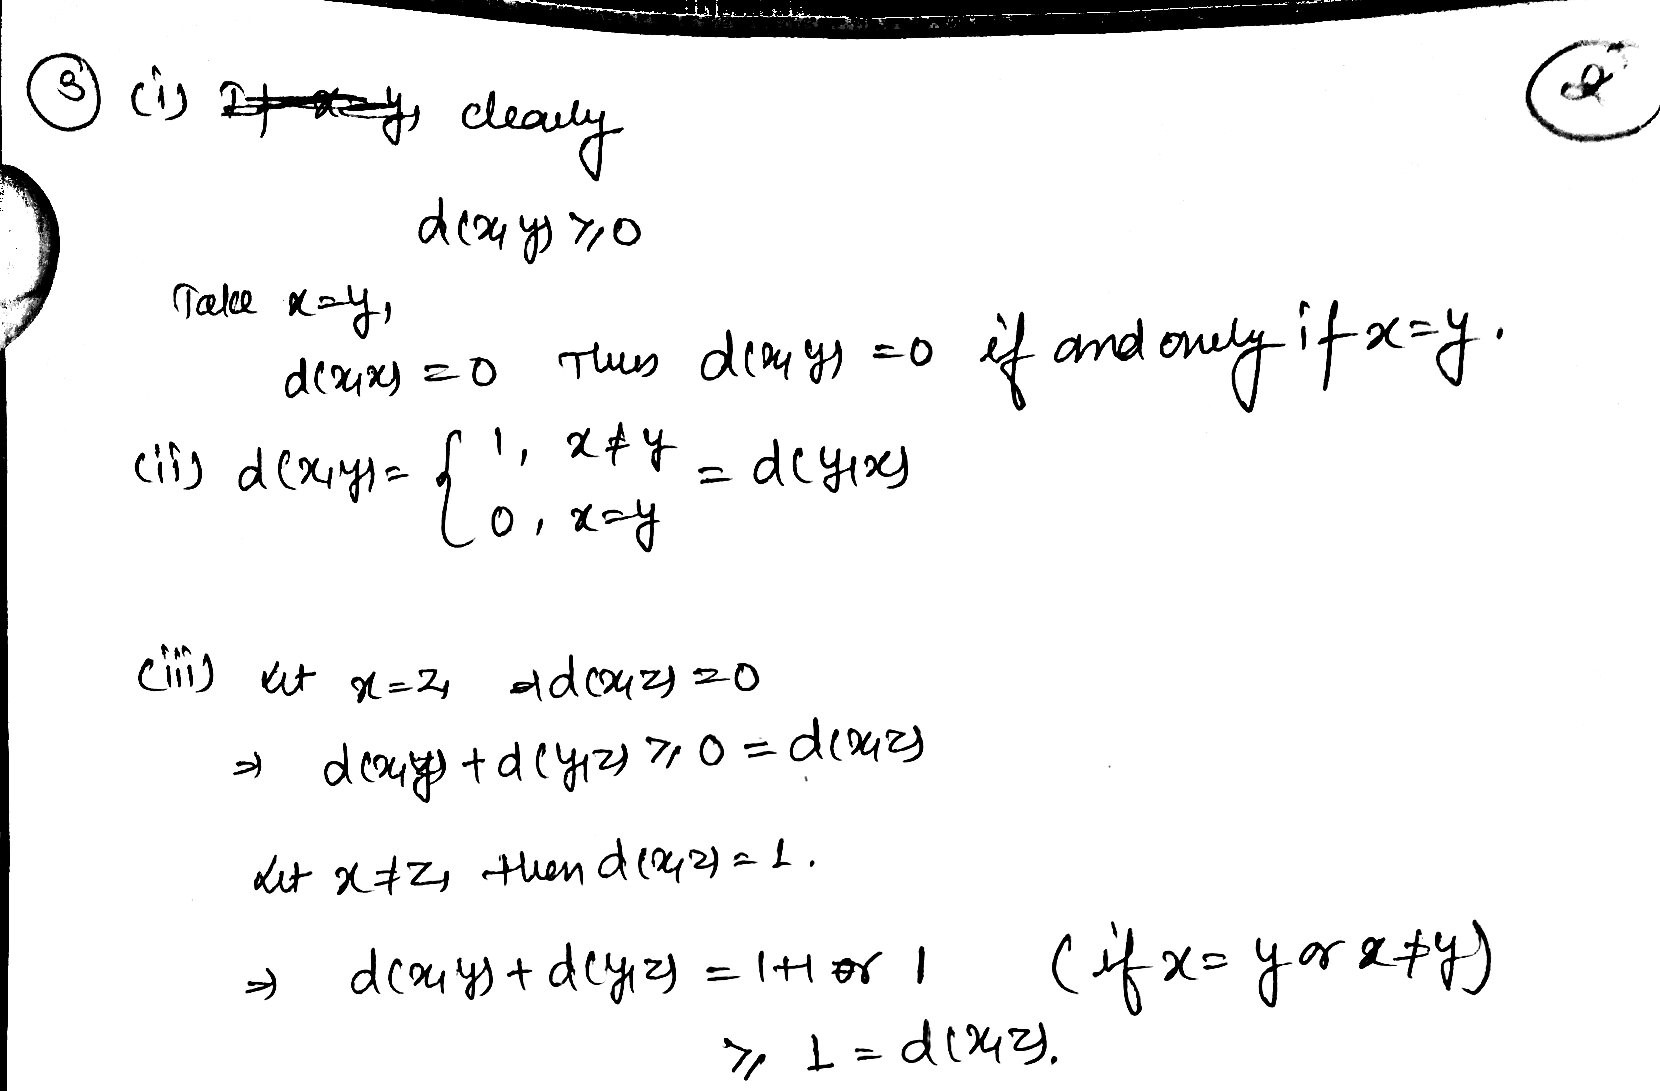 ③ (i) clearly
②
d(x,y) ≥ 0
Take x=y,
d(x,x) = 0 Thus d(x,y) = 0 if and only if x=y.
(ii) d(x,y) = { 1, x≠y = d(y,x)
0, x=y
(iii) Let x=z, ⇒ d(x,z) = 0
⇒ d(x,y) + d(y,z) ≥ 0 = d(x,z)
Let x≠z, then d(x,z) = 1.
⇒ d(x,y) + d(y,z) = 1+1 or 1 (if x=y or x≠y)
≥ 1 = d(x,z).